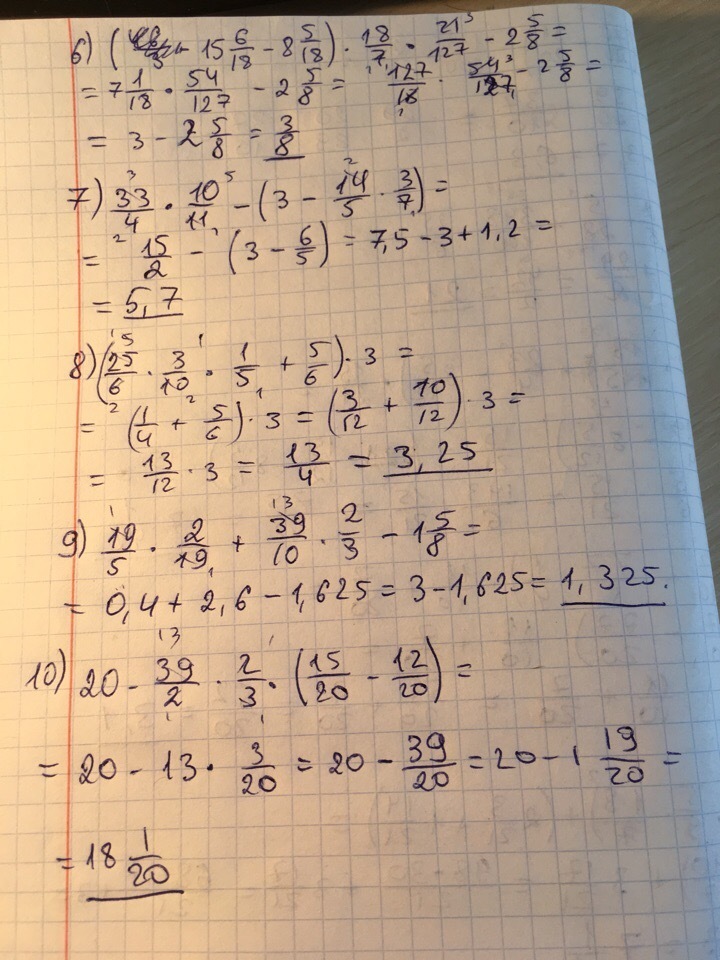 6) ( 15 6/18 - 8 5/18 ) · 18/7 · 21/127 - 2 5/8 =
= 7 1/18 · 54/127 - 2 5/8 = 127/18 · 54/127 - 2 5/8 =
= 3 - 2 5/8 = 3/8
7) 33/4 · 10/11 - (3 - 14/5 · 3/7) =
= 15/2 - (3 - 6/5) = 7,5 - 3 + 1,2 =
= 5,7
8) (25/6 · 3/10 · 1/5 + 5/6) · 3 =
= (1/4 + 5/6) · 3 = (3/12 + 10/12) · 3 =
= 13/12 · 3 = 13/4 = 3,25
9) 19/5 · 2/19 + 39/10 · 2/3 - 1 5/8 =
= 0,4 + 2,6 - 1,625 = 3 - 1,625 = 1,325.
10) 20 - 39/2 · 2/3 · (15/20 - 12/20) =
= 20 - 13 · 3/20 = 20 - 39/20 = 20 - 1 19/20 =
= 18 1/20